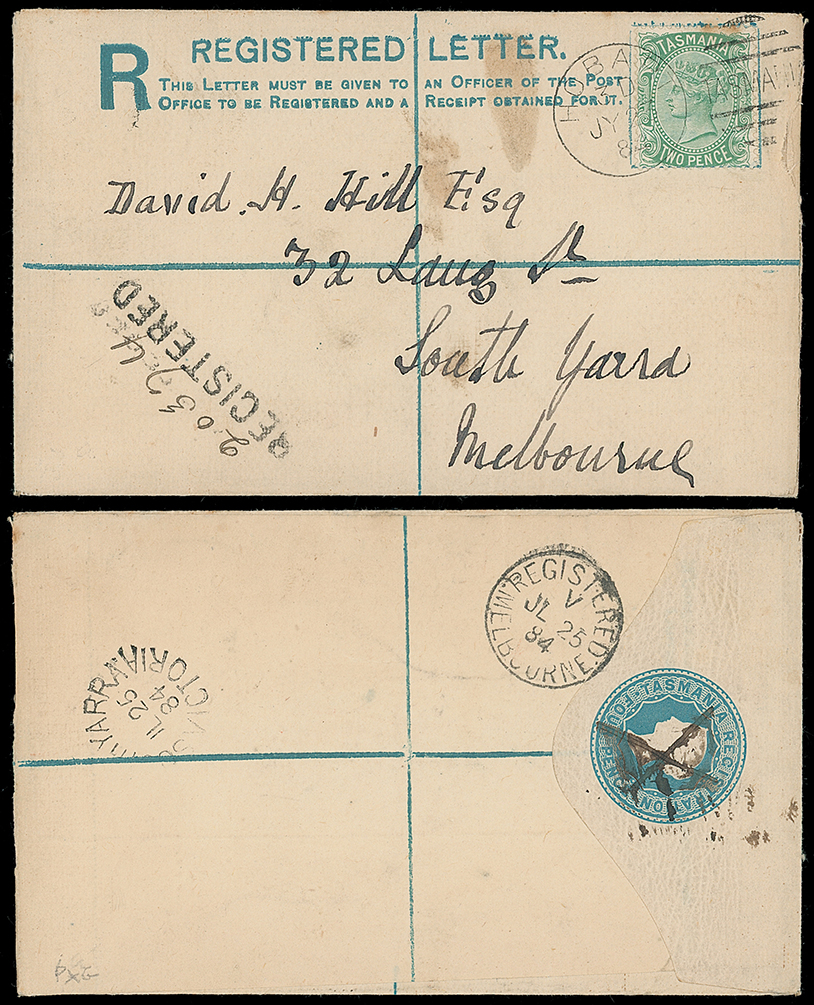 R REGISTERED LETTER.
THIS LETTER MUST BE GIVEN TO AN OFFICER OF THE POST
OFFICE TO BE REGISTERED AND A RECEIPT OBTAINED FOR IT.
TASMANIA
TWO PENCE
HOBART
JY
84
TASMANIA
David. H. Hill Esq
32 Lang St
South Yarra
Melbourne
REGISTERED
REGISTERED
V
JL 25
84
MELBOURNE
YARRA
JL 25
84
VICTORIA
TASMANIA REGISTRATION FOUR PENCE